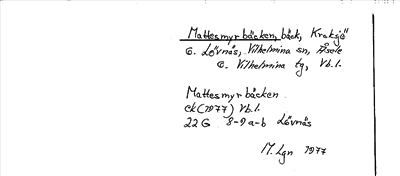 Mattesmyrbäcken, bäck, Kraksjö
C. Lövnäs, Vilhelmina sn, Åsele
C. Vilhelmina tg, Vb.l.
Mattesmyrbäcken
ek (1977) Vb.l.
22G 8-9 a-b Lövnäs
M. Lgn 1977